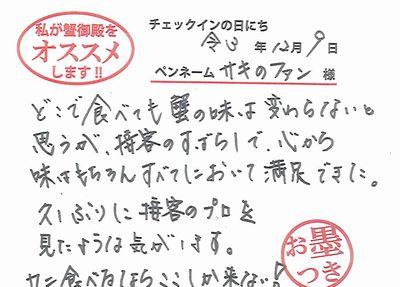 私が蟹御殿を
オススメ
します!!
チェックインの日にち
令3年12月9日
ペンネーム サキのファン 様
どこで食べても蟹の味は変わらないと
思うが、接客のすばらしで、心から
味はもちろんすべてにおいて満足できた。
久しぶりに接客のプロを
見たような気がします。
カニ食べるならここしか来ない?
お墨
つき